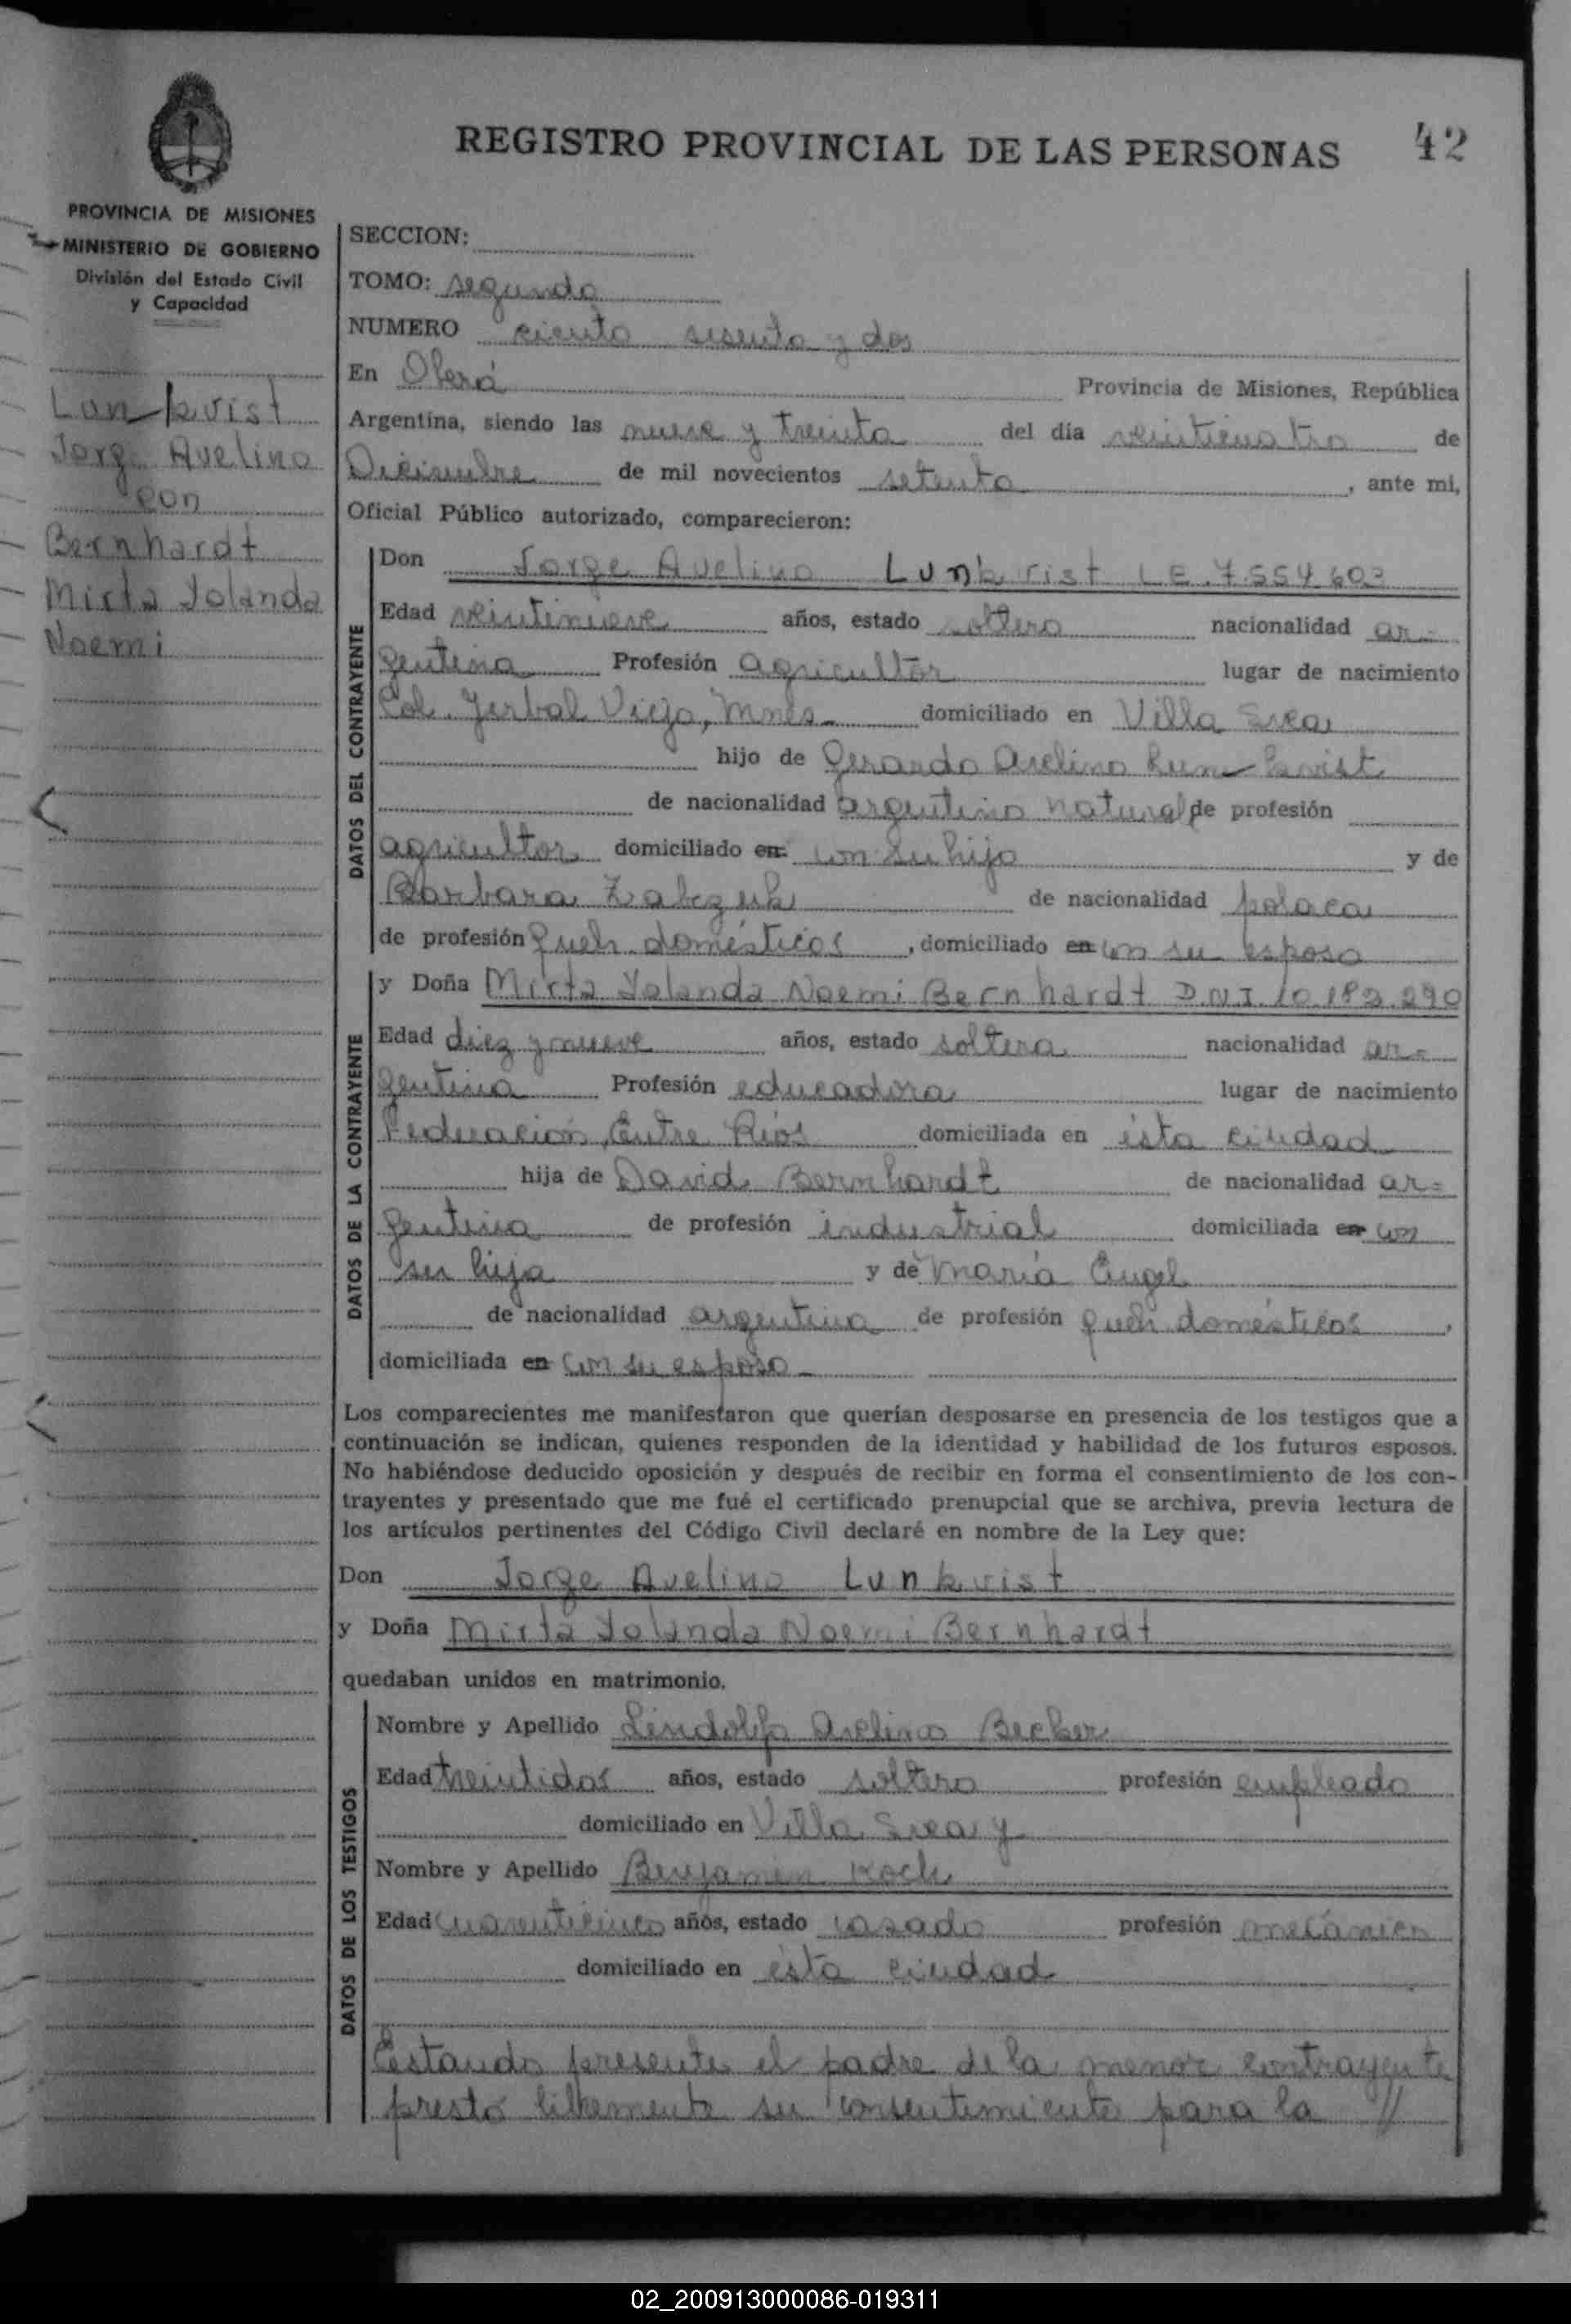 REGISTRO PROVINCIAL DE LAS PERSONAS 42
PROVINCIA DE MISIONES
MINISTERIO DE GOBIERNO
División del Estado Civil
y Capacidad
Lunkvist
Jorge Avelino
con
Bernhardt
Mirta Yolanda
Noemi
SECCION:
TOMO: segundo
NUMERO ciento sesenta y dos
En Oberá Provincia de Misiones, República
Argentina, siendo las nueve y treinta del día veinticuatro de
Diciembre de mil novecientos setenta, ante mi,
Oficial Público autorizado, comparecieron:
DATOS DEL CONTRAYENTE
Don Jorge Avelino Lunkvist L.E. 7.554.603
Edad veintinueve años, estado soltero nacionalidad ar-
gentina Profesión agricultor lugar de nacimiento
Col. Yerbal Viejo, Mnes. domiciliado en Villa Svea
hijo de Gerardo Avelino Lunkvist
de nacionalidad argentino natural de profesión
agricultor domiciliado en con su hijo y de
Barbara de nacionalidad polaca
de profesión queh. domésticos, domiciliado en con su esposo
DATOS DE LA CONTRAYENTE
y Doña Mirta Yolanda Noemi Bernhardt D.N.I. 10.182.290
Edad diez y nueve años, estado soltera nacionalidad ar-
gentina Profesión educadora lugar de nacimiento
Federación, Entre Ríos domiciliada en ésta ciudad
hija de David Bernhardt de nacionalidad ar-
gentina de profesión industrial domiciliada en con
su hija y de María Engel
de nacionalidad argentina de profesión queh. domésticos,
domiciliada en con su esposo
Los comparecientes me manifestaron que querían desposarse en presencia de los testigos que a
continuación se indican, quienes responden de la identidad y habilidad de los futuros esposos.
No habiéndose deducido oposición y después de recibir en forma el consentimiento de los con-
trayentes y presentado que me fué el certificado prenupcial que se archiva, previa lectura de
los artículos pertinentes del Código Civil declaré en nombre de la Ley que:
Don Jorge Avelino Lunkvist
y Doña Mirta Yolanda Noemi Bernhardt
quedaban unidos en matrimonio.
DATOS DE LOS TESTIGOS
Nombre y Apellido Lindolfo Avelino Becker
Edad treintidos años, estado soltero profesión empleado
domiciliado en Villa Svea y
Nombre y Apellido Benjamin Koch
Edad cuarenticinco años, estado casado profesión mecánico
domiciliado en ésta ciudad
Estando presente el padre de la menor contrayente
prestó libremente su consentimiento para la //
02_200913000086-019311